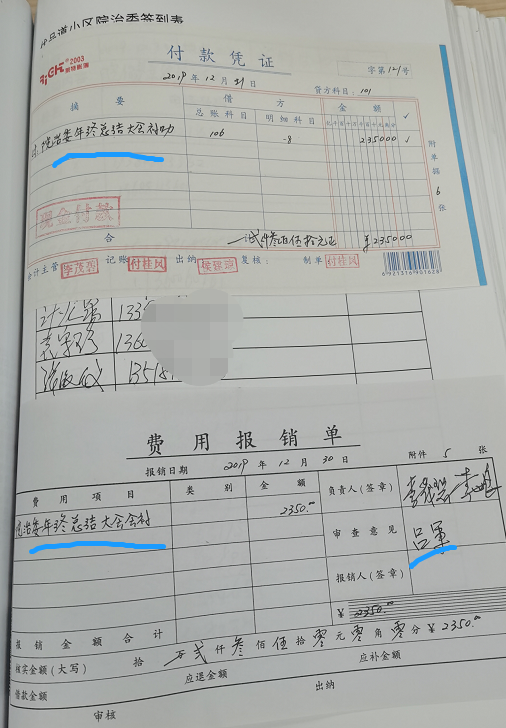 小区院治委签到表
付款凭证
2003
字第121号
2019年12月31日
贷方科目：101
摘要
借方
金额
✓
总账科目
明细科目
付院治委年终总结大会补助
106
-8
235000
✓
附单据6张
现金付款
合
贰仟叁佰伍拾元正
¥235000
会计主管
记账
付桂凤
出纳
复核：
制单
付桂凤
6921316901628
133
136
1351
费用报销单
报销日期 2019年12月30日
附件 5 张
费用项目
类别
金额
负责人（签章）
院治委年终总结大会会补
2350.00
审查意见
吕军
报销人（签章）
¥2350.00
报销金额合计
核实金额（大写） 拾 万 贰仟叁佰伍拾零元零角零分 ¥2350.00
借款金额
应退金额
应补金额
审核
出纳